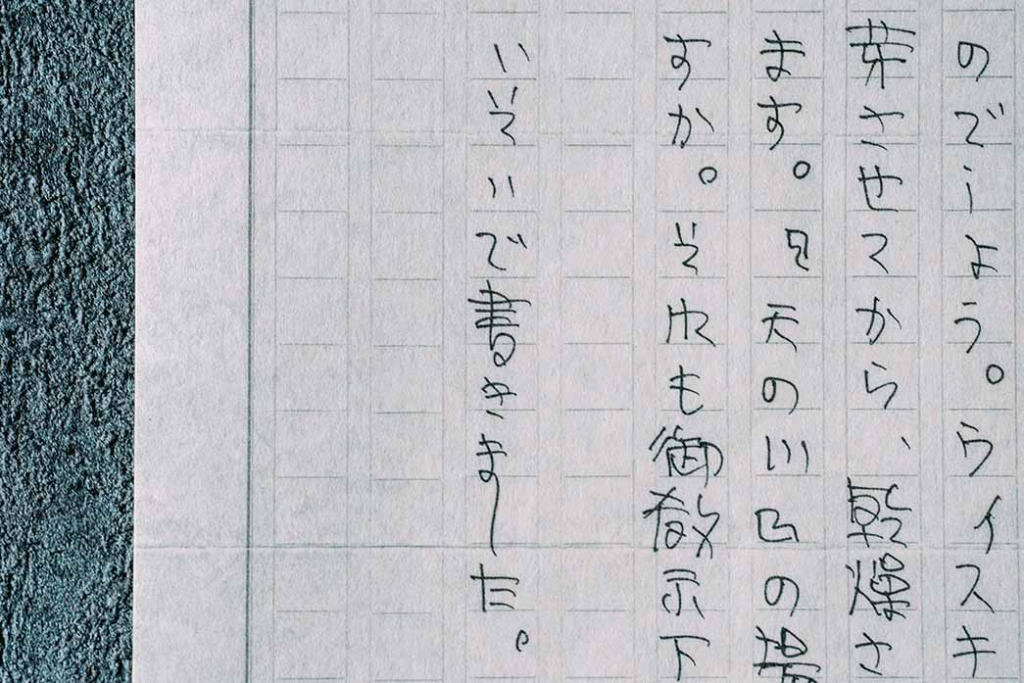 のでしょう。ウイスキ
芽させてから、乾燥さ
ます。天の川の場
すか。それも御教示下
いそいで書きました。